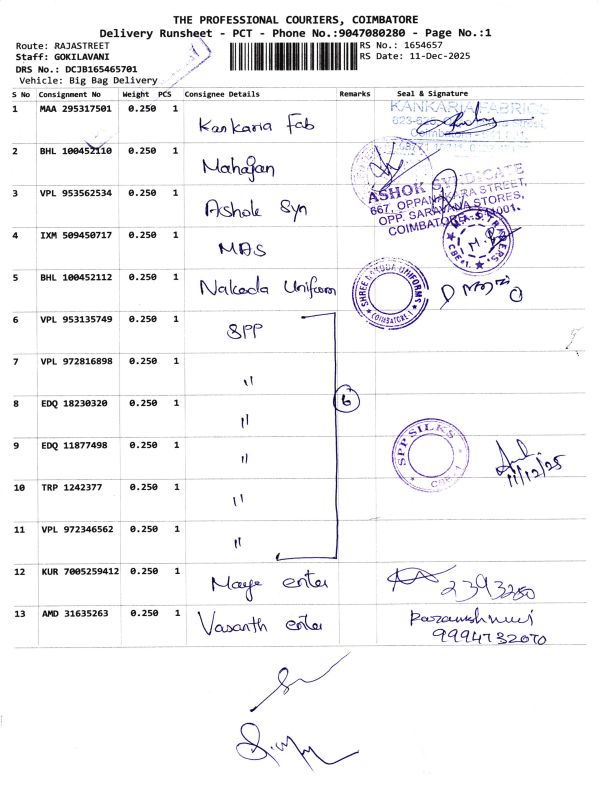 THE PROFESSIONAL COURIERS, COIMBATORE
Delivery Runsheet - PCT - Phone No.:9047080280 - Page No.:1
Route: RAJASTREET
RS No.: 1654657
Staff: GOKILAVANI
RS Date: 11-Dec-2025
DRS No.: DCJB165465701
Vehicle: Big Bag Delivery
S No Consignment No Weight PCS Consignee Details Remarks Seal & Signature
1 MAA 295317501 0.250 1 Kankaria Fab
KANKARIA FABRICS
2 BHL 100452110 0.250 1 Mahajan
3 VPL 953562534 0.250 1 Ashok Syn
ASHOK SYNDICATE
667, OPPANAKARA STREET,
OPP. SARAVANA STORES,
COIMBATORE - 641001.
4 IXM 509450717 0.250 1 MAS
M.A.S. TRADERS
CBE-1
5 BHL 100452112 0.250 1 Nakoda Uniform
SHREE NAKODA UNIFORMS
COIMBATORE-1
6 VPL 953135749 0.250 1 SPP
7 VPL 972816898 0.250 1 "
8 EDQ 18230320 0.250 1 " 6
9 EDQ 11877498 0.250 1 "
SPP SILKS
CBE-1
11/12/25
10 TRP 1242377 0.250 1 "
11 VPL 972346562 0.250 1 "
12 KUR 7005259412 0.250 1 enter 2393280
13 AMD 31635263 0.250 1 Vasanth enter
9994732070